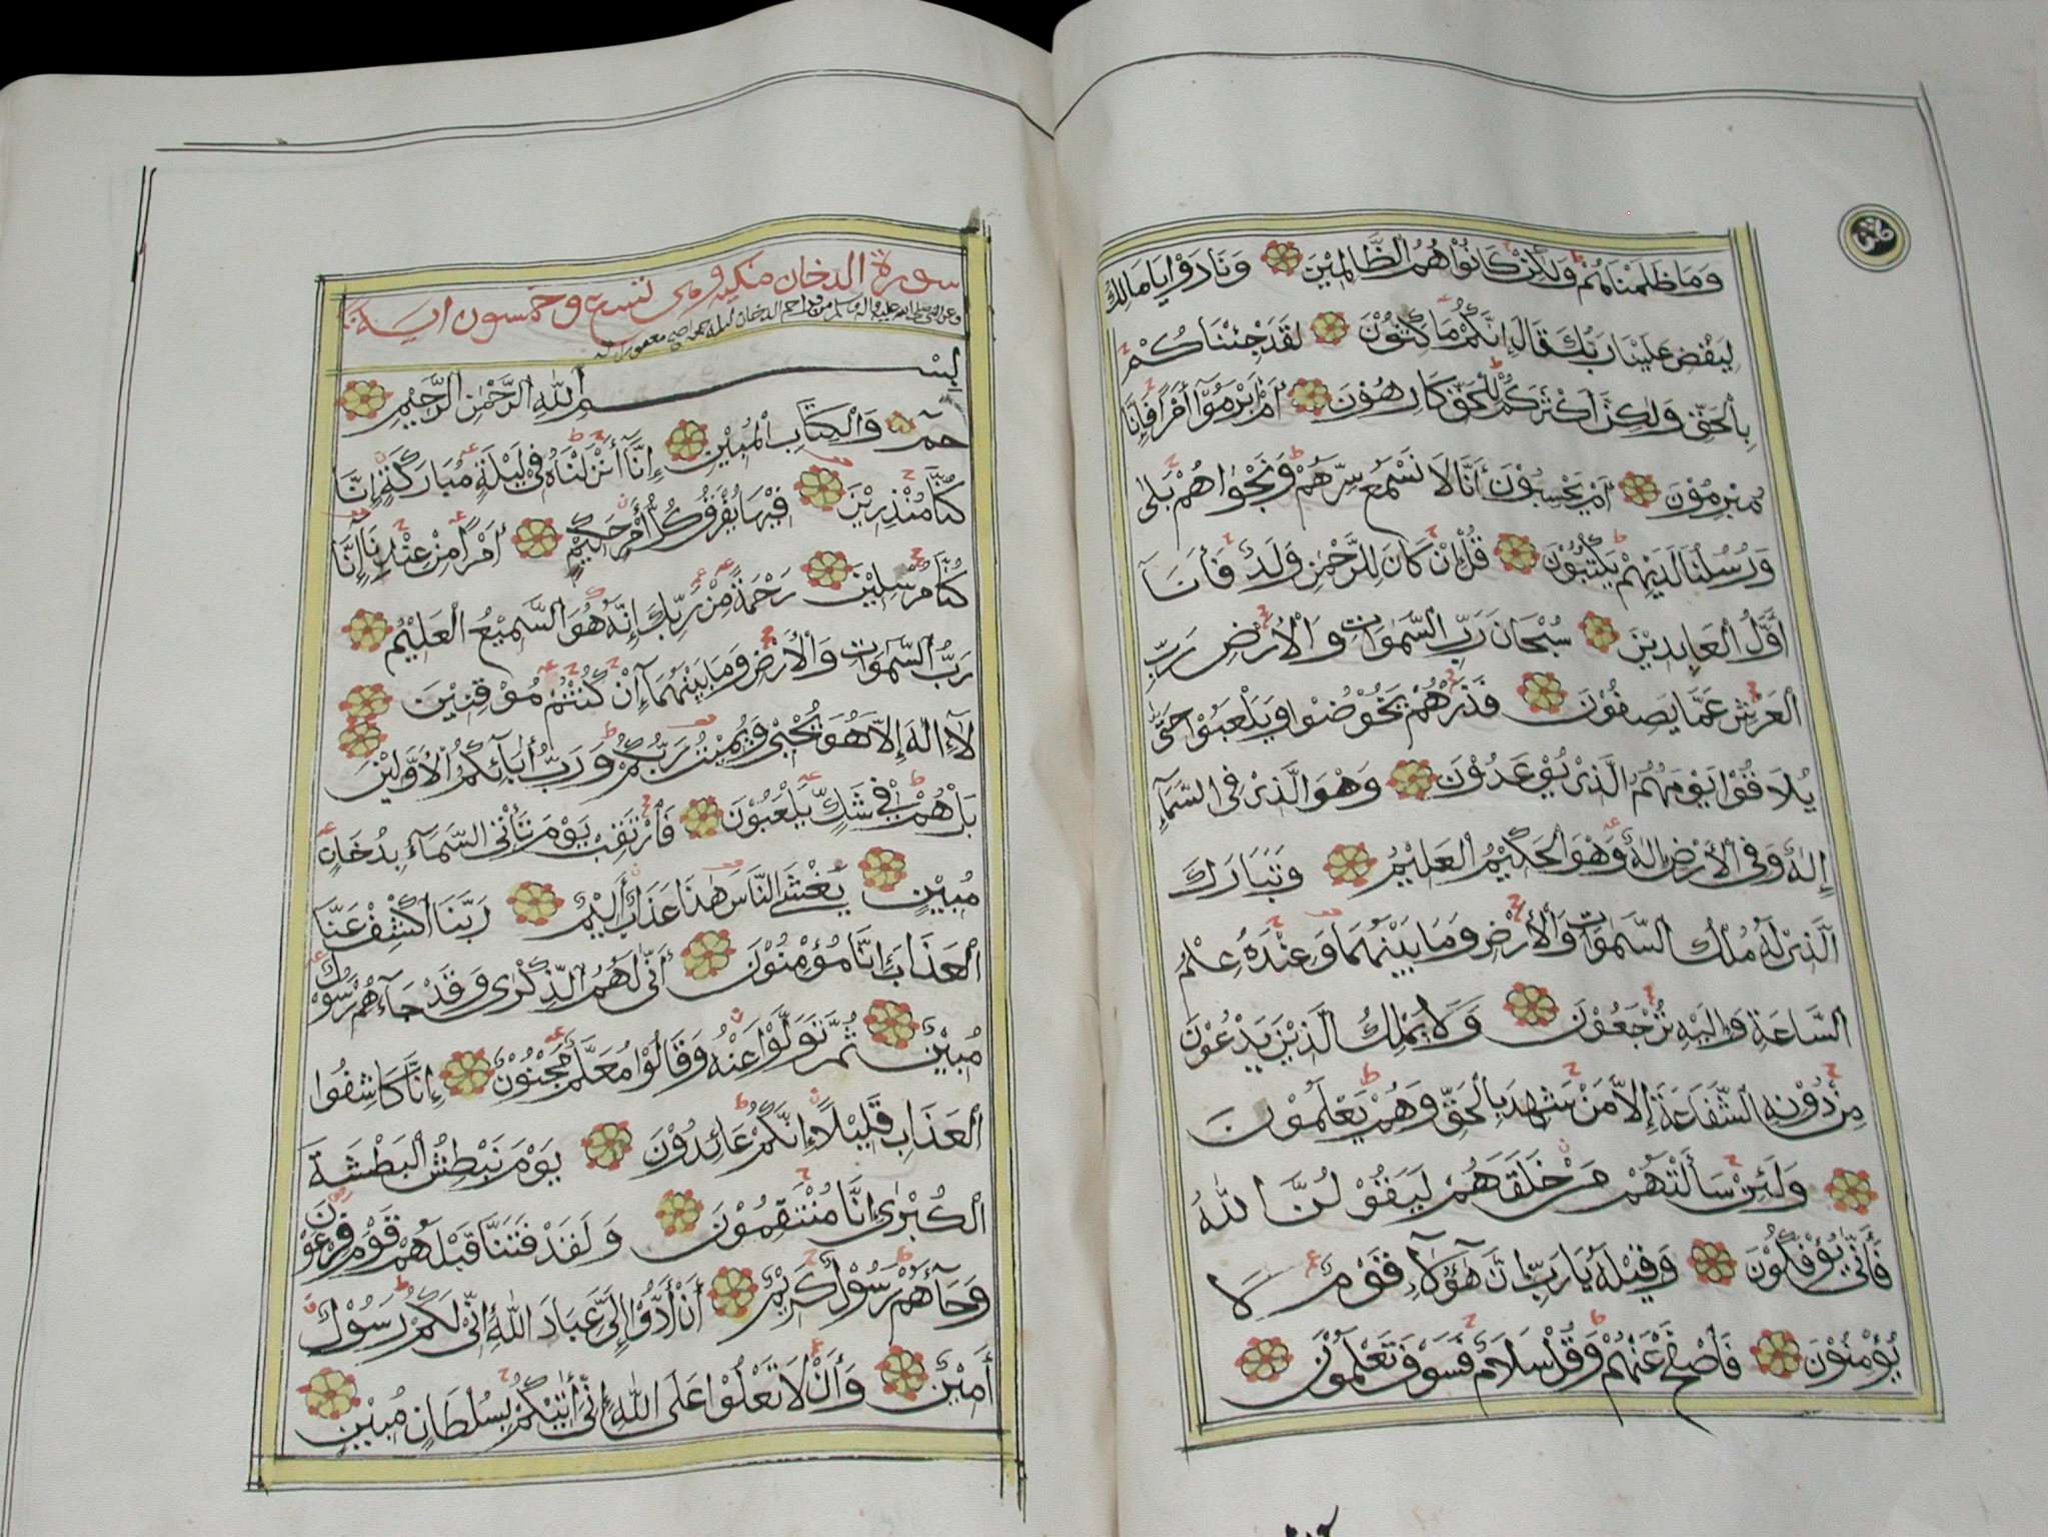 وَمَا ظَلَمْنَاهُمْ وَلَٰكِنْ كَانُوْا هُمُ الظَّالِمِيْنَ وَنَادَوْا يَا مَالِكُ
لِيَقْضِ عَلَيْنَا رَبُّكَ قَالَ إِنَّكُمْ مَاكِثُوْنَ لَقَدْ جِئْنَاكُمْ
بِالْحَقِّ وَلٰكِنَّ أَكْثَرَكُمْ لِلْحَقِّ كَارِهُوْنَ أَمْ أَبْرَمُوْٓا أَمْرًا فَإِنَّا
مُبْرِمُوْنَ أَمْ يَحْسَبُوْنَ أَنَّا لَا نَسْمَعُ سِرَّهُمْ وَنَجْوٰاهُمْ بَلٰى
وَرُسُلُنَا لَدَيْهِمْ يَكْتُبُوْنَ قُلْ إِنْ كَانَ لِلرَّحْمٰنِ وَلَدٌ فَأَنَا
أَوَّلُ الْعَابِدِيْنَ سُبْحَانَ رَبِّ السَّمٰوَاتِ وَالْأَرْضِ رَبِّ
الْعَرْشِ عَمَّا يَصِفُوْنَ فَذَرْهُمْ يَخُوْضُوْا وَيَلْعَبُوْا حَتّٰى
يُلَاقُوْا يَوْمَهُمُ الَّذِيْ يُوْعَدُوْنَ وَهُوَ الَّذِيْ فِي السَّمَآءِ
إِلٰهٌ وَفِي الْأَرْضِ إِلٰهٌ وَهُوَ الْحَكِيْمُ الْعَلِيْمُ وَتَبَارَكَ
الَّذِيْ لَهُ مُلْكُ السَّمٰوَاتِ وَالْأَرْضِ وَمَا بَيْنَهُمَا وَعِنْدَهُ عِلْمُ
السَّاعَةِ وَإِلَيْهِ تُرْجَعُوْنَ وَلَا يَمْلِكُ الَّذِيْنَ يَدْعُوْنَ
مِنْ دُوْنِهِ الشَّفَاعَةَ إِلَّا مَنْ شَهِدَ بِالْحَقِّ وَهُمْ يَعْلَمُوْنَ
وَلَئِنْ سَأَلْتَهُمْ مَنْ خَلَقَهُمْ لَيَقُوْلُنَّ اللّٰهُ
فَأَنّٰى يُؤْفَكُوْنَ وَقِيْلِهِ يَا رَبِّ إِنَّ هٰٓؤُلَآءِ قَوْمٌ لَا
يُؤْمِنُوْنَ فَاصْفَحْ عَنْهُمْ وَقُلْ سَلَامٌ فَسَوْفَ تَعْلَمُوْنَ
سورة الدخان مكية وهى تسع وخمسون اية
بِسْمِ اللّٰهِ الرَّحْمٰنِ الرَّحِيْمِ
حٰمٓ وَالْكِتَابِ الْمُبِيْنِ إِنَّآ أَنْزَلْنَاهُ فِيْ لَيْلَةٍ مُبَارَكَةٍ إِنَّا
كُنَّا مُنْذِرِيْنَ فِيْهَا يُفْرَقُ كُلُّ أَمْرٍ حَكِيْمٍ أَمْرًا مِنْ عِنْدِنَا إِنَّا
كُنَّا مُرْسِلِيْنَ رَحْمَةً مِنْ رَبِّكَ إِنَّهُ هُوَ السَّمِيْعُ الْعَلِيْمُ
رَبُّ السَّمٰوَاتِ وَالْأَرْضِ وَمَا بَيْنَهُمَا إِنْ كُنْتُمْ مُوْقِنِيْنَ
لَآ إِلٰهَ إِلَّا هُوَ يُحْيِيْ وَيُمِيْتُ رَبُّكُمْ وَرَبُّ أٰبَآئِكُمُ الْأَوَّلِيْنَ
بَلْ هُمْ فِيْ شَكٍّ يَلْعَبُوْنَ فَارْتَقِبْ يَوْمَ تَأْتِي السَّمَآءُ بِدُخَانٍ
مُبِيْنٍ يَغْشَى النَّاسَ هٰذَا عَذَابٌ أَلِيْمٌ رَبَّنَا اكْشِفْ عَنَّا
الْعَذَابَ إِنَّا مُؤْمِنُوْنَ أَنّٰى لَهُمُ الذِّكْرٰى وَقَدْ جَآءَهُمْ رَسُوْلٌ
مُبِيْنٌ ثُمَّ تَوَلَّوْا عَنْهُ وَقَالُوْا مُعَلَّمٌ مَجْنُوْنٌ إِنَّا كَاشِفُوا
الْعَذَابِ قَلِيْلًا إِنَّكُمْ عَائِدُوْنَ يَوْمَ نَبْطِشُ الْبَطْشَةَ
الْكُبْرٰى إِنَّا مُنْتَقِمُوْنَ وَلَقَدْ فَتَنَّا قَبْلَهُمْ قَوْمَ فِرْعَوْنَ
وَجَآءَهُمْ رَسُوْلٌ كَرِيْمٌ أَنْ أَدُّوْٓا إِلَيَّ عِبَادَ اللّٰهِ إِنِّيْ لَكُمْ رَسُوْلٌ
أَمِيْنٌ وَأَنْ لَا تَعْلُوْا عَلَى اللّٰهِ إِنِّيْ أٰتِيْكُمْ بِسُلْطَانٍ مُبِيْنٍ